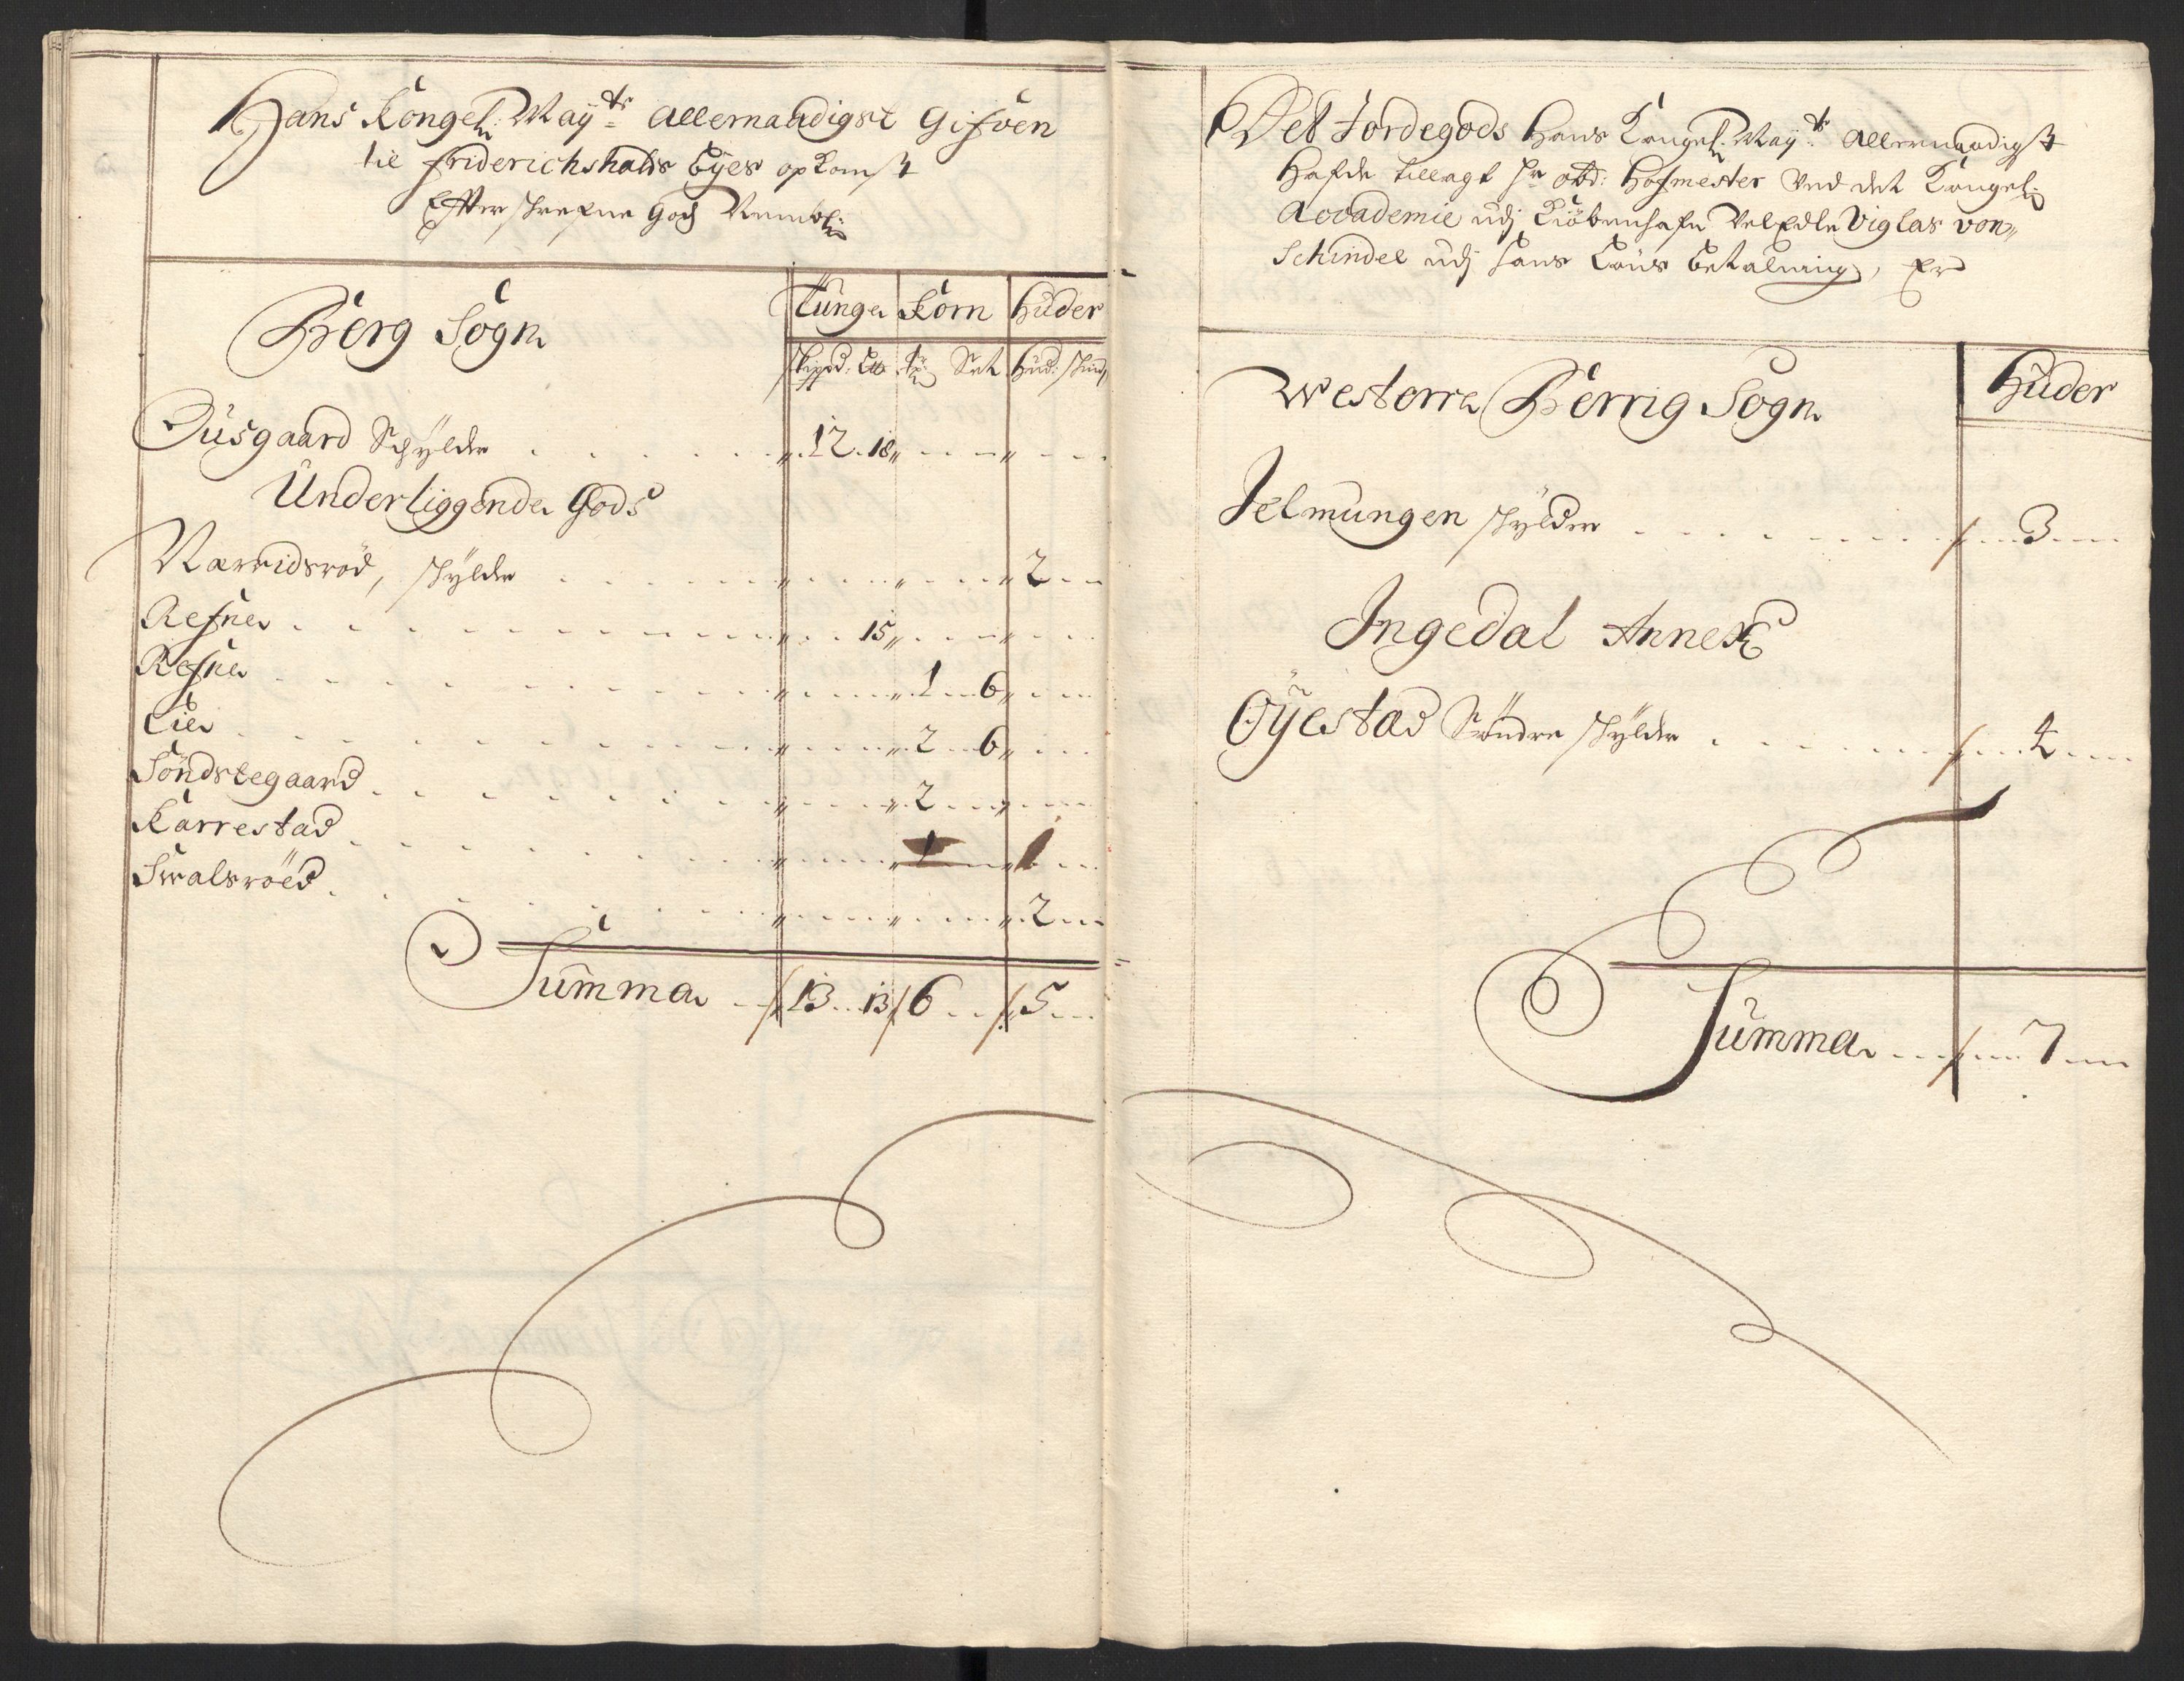 Hans Kongel: Maÿts: allernaadigst Gifven
til friderichshalds Byes opkomst
Effterschrefne Godz Nembl:
Berg Sogn
Tunge Korn Huder
Skippd: L℔ tr: Set Hud: skind
Büsgaard Schÿlder . . . . . 12. 18
Underliggende Gods
Narridsröd, skÿlder . . . . . 2
Refne . . . . . 15
Refne . . . . . 1 6
Lie . . . . . 2 6
Söndstegaard . . . . . 2
Karrestad . . . . . 1
Swalsröed . . . . . 2
Summa 13. 13 6 5
Det Jordegods Hans Kongel: Maÿts: allernaadigst
Hafde tillagt Hr obd: Hofmester Ved det Kongel:
Accademie udj Kiöbenhafn VelEdle Viglas von
Schindel udj hans Løns betalning, Er
Westerre Berrig Sogn
Huder
Jelmungen skÿlder . . . . . 3
Ingedal Annex
Öÿestad Søndre skÿlder . . . . . 4
Summa . . . 7